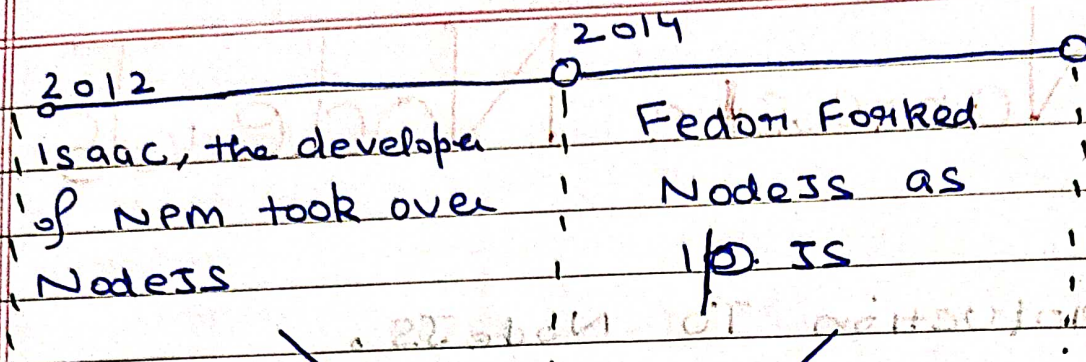 2012
Isaac, the developer
of NPM took over
NodeJS
2014
Fedor Forked
NodeJS as
I/O. JS